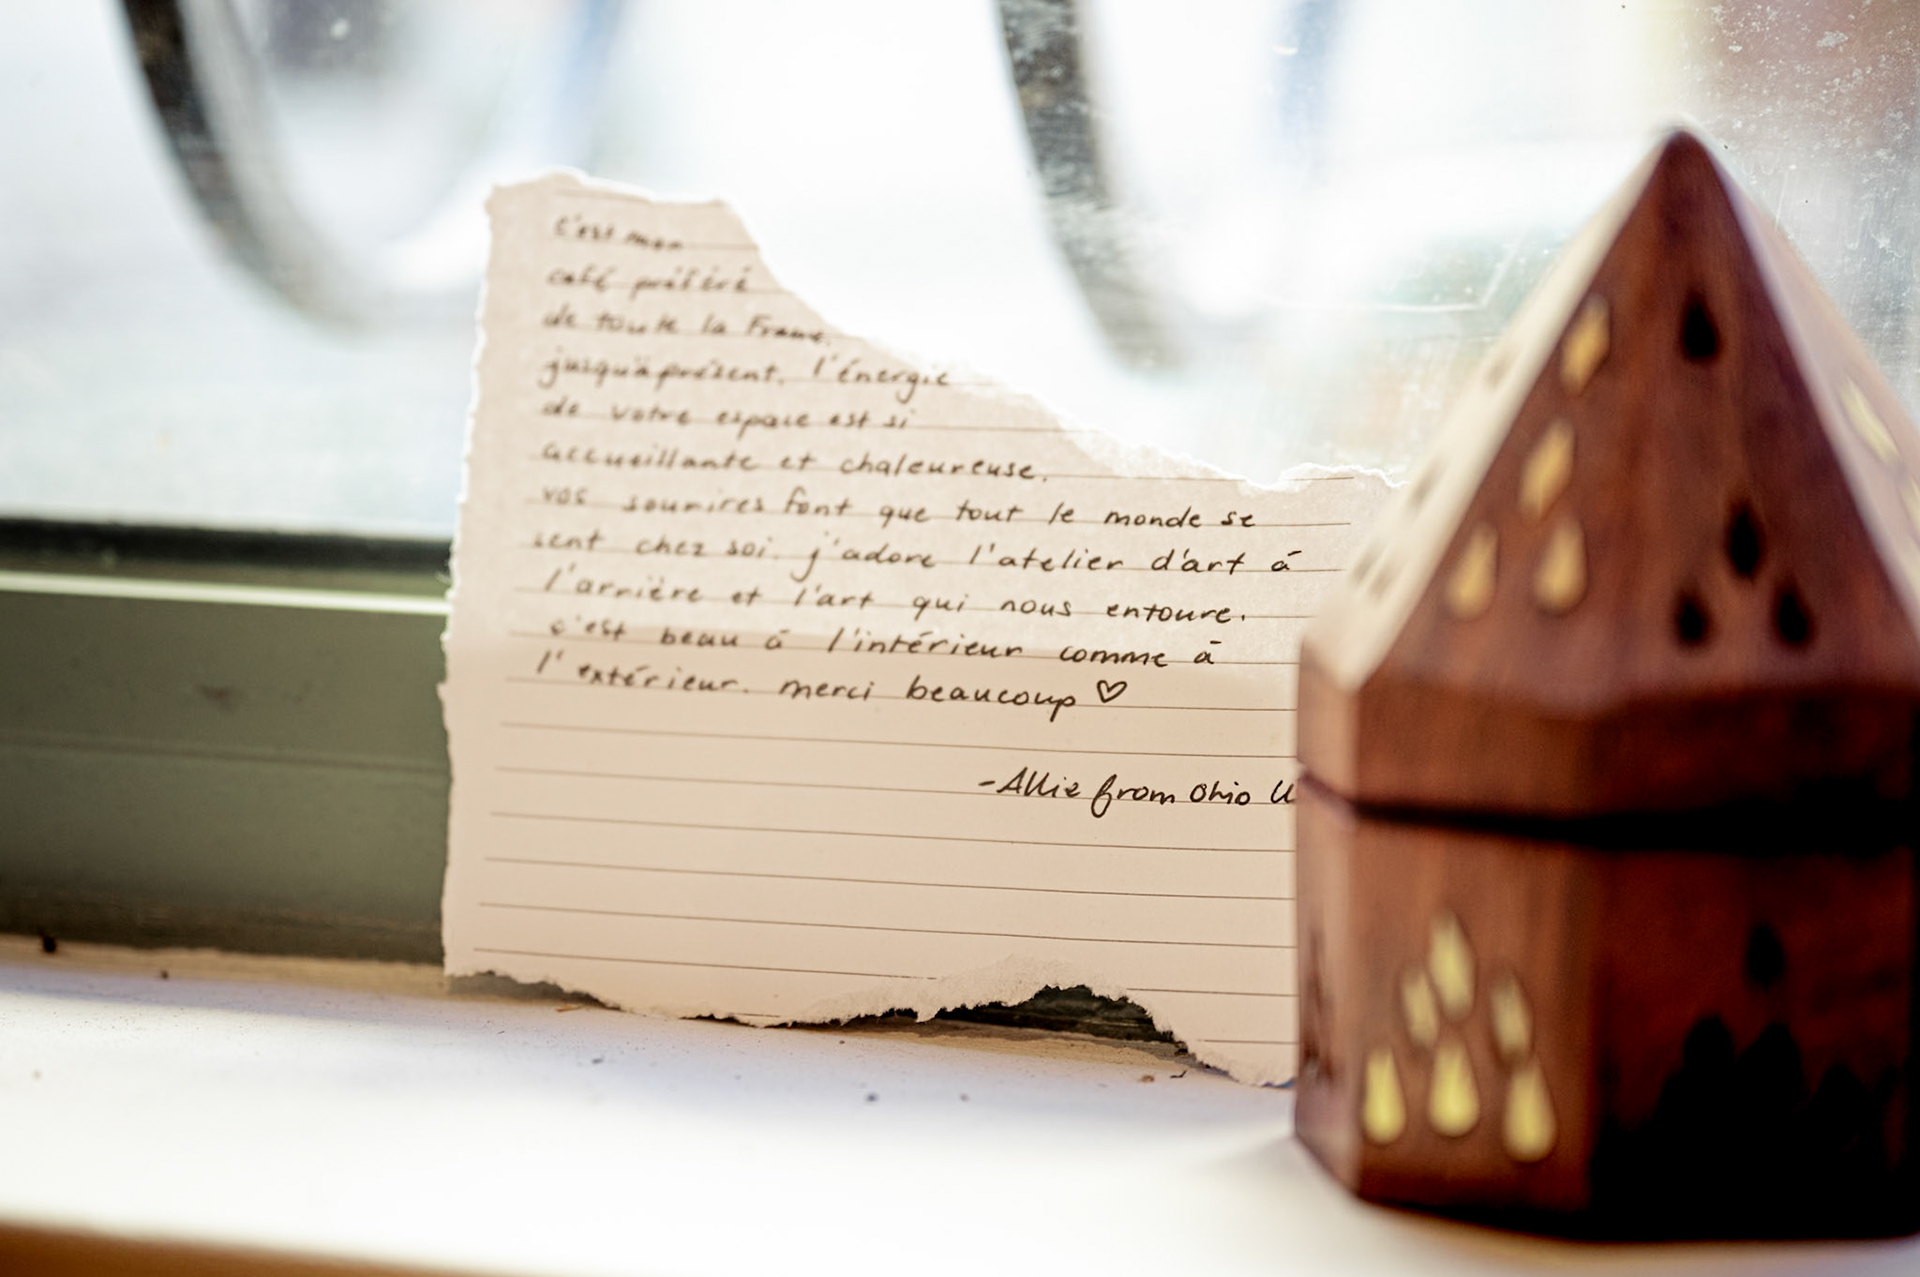 c'est mon
café préféré
de toute la France
jusqu'à présent. l'énergie
de votre espace est si
accueillante et chaleureuse.
vos sourires font que tout le monde se
sent chez soi. j'adore l'atelier d'art à
l'arrière et l'art qui nous entoure.
c'est beau à l'intérieur comme à
l'extérieur. merci beaucoup ♡
-Allie from Ohio U